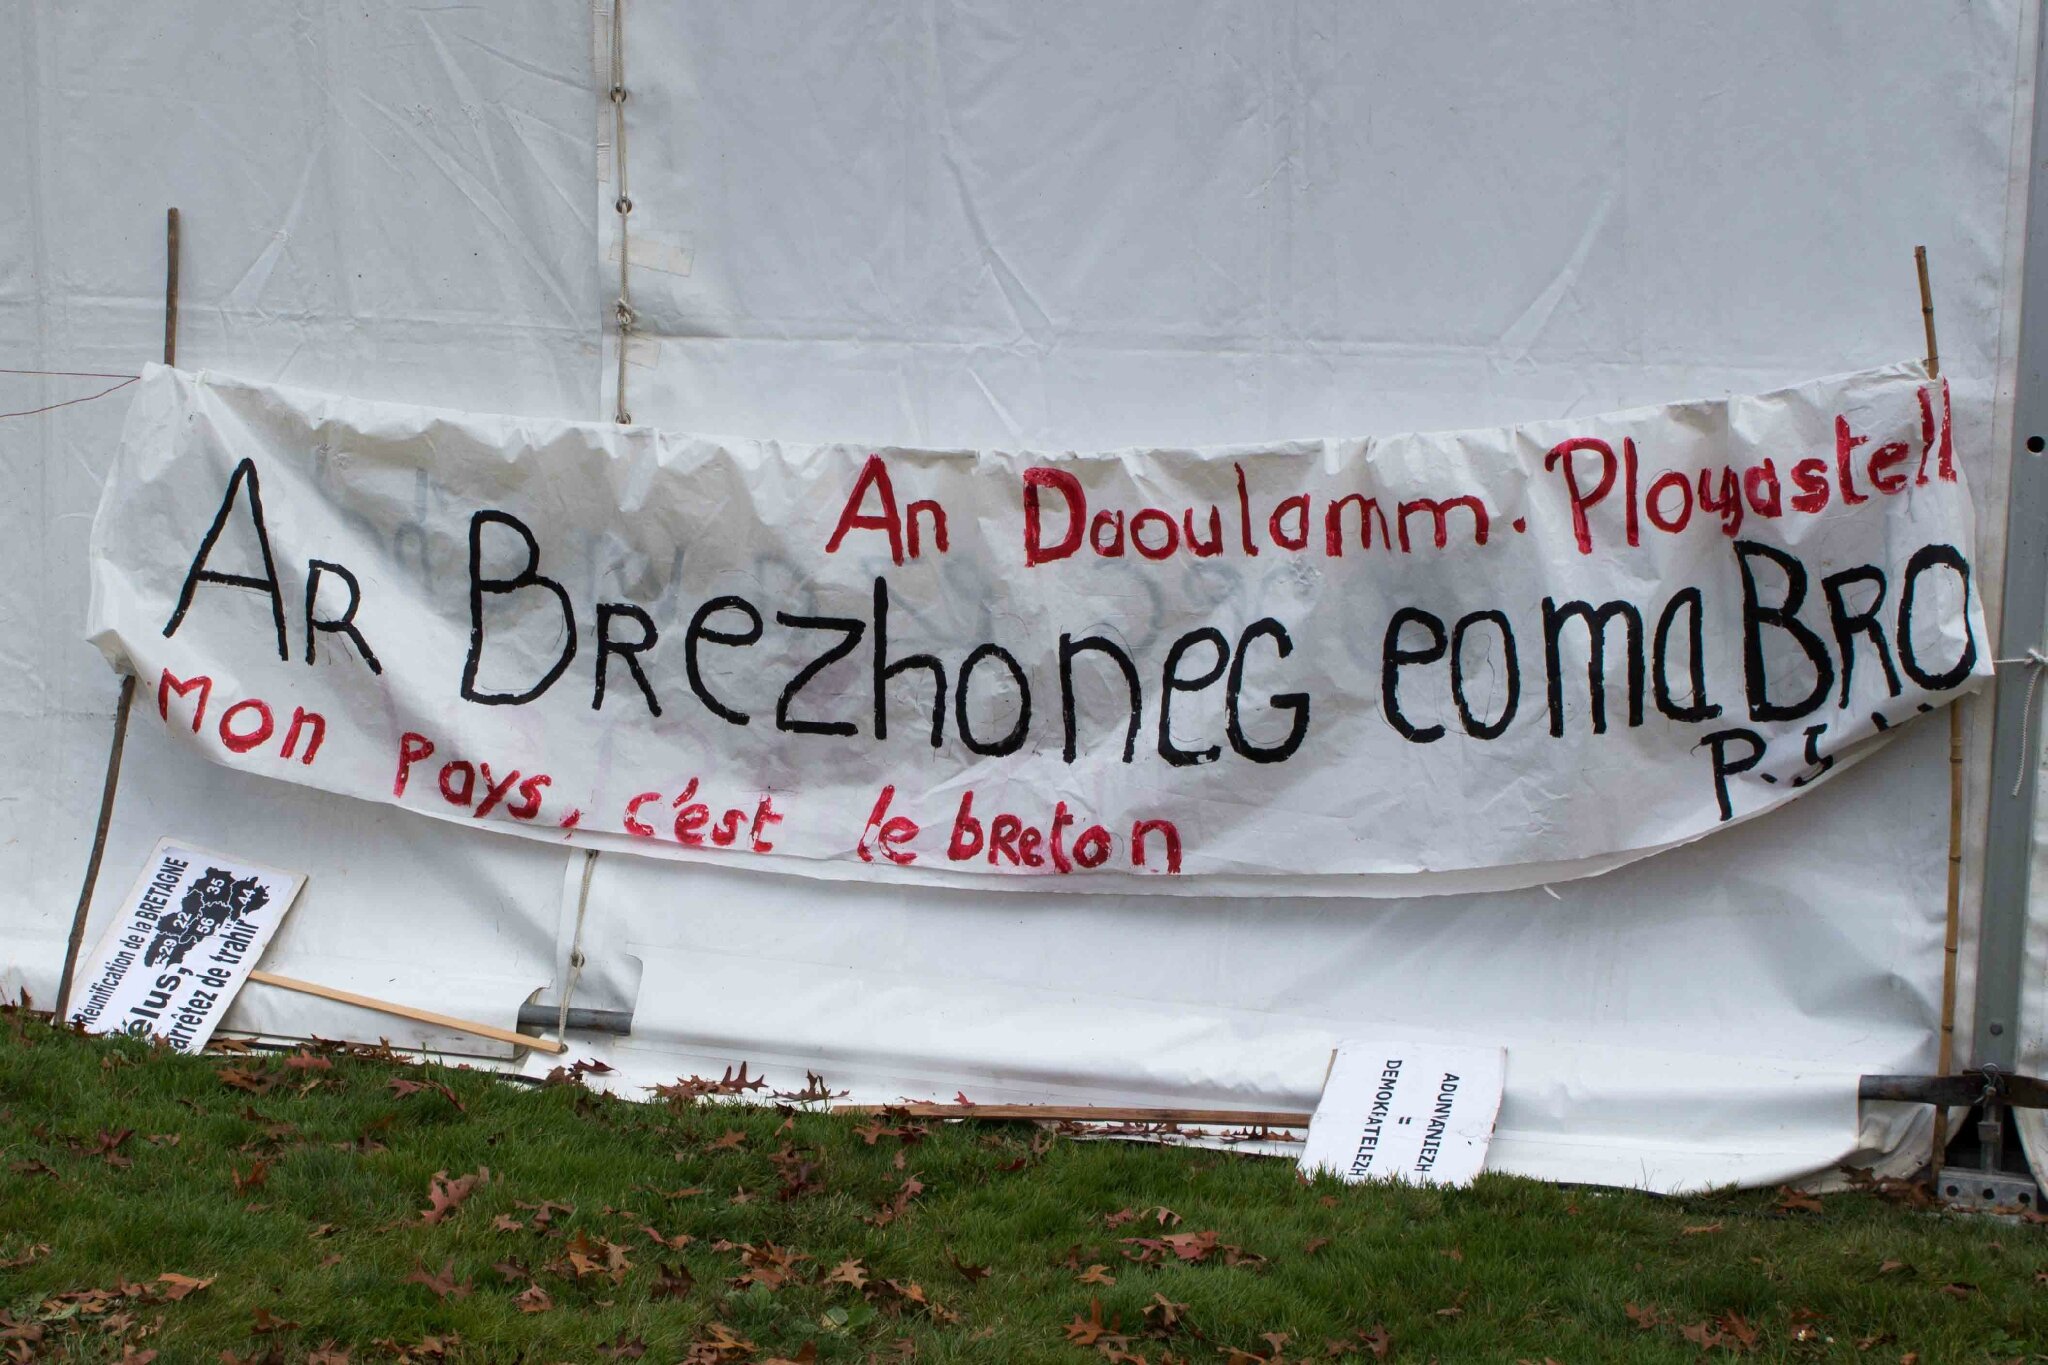 An Daoulamm. Plougastell
AR BRezhoneG eo ma BRO
Mon pays, c'est le bReton
Réunification de la BRETAGNE
35
44
22
56
29
élus,
arrêtez de trahir
ADUNVANIEZH
=
DEMOKRATELEZH